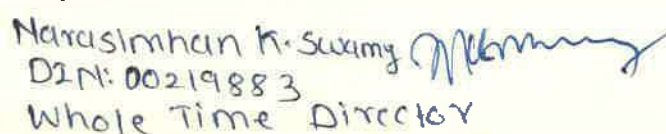 Narasimhan K. Swamy
DIN: 00219883
Whole Time Director